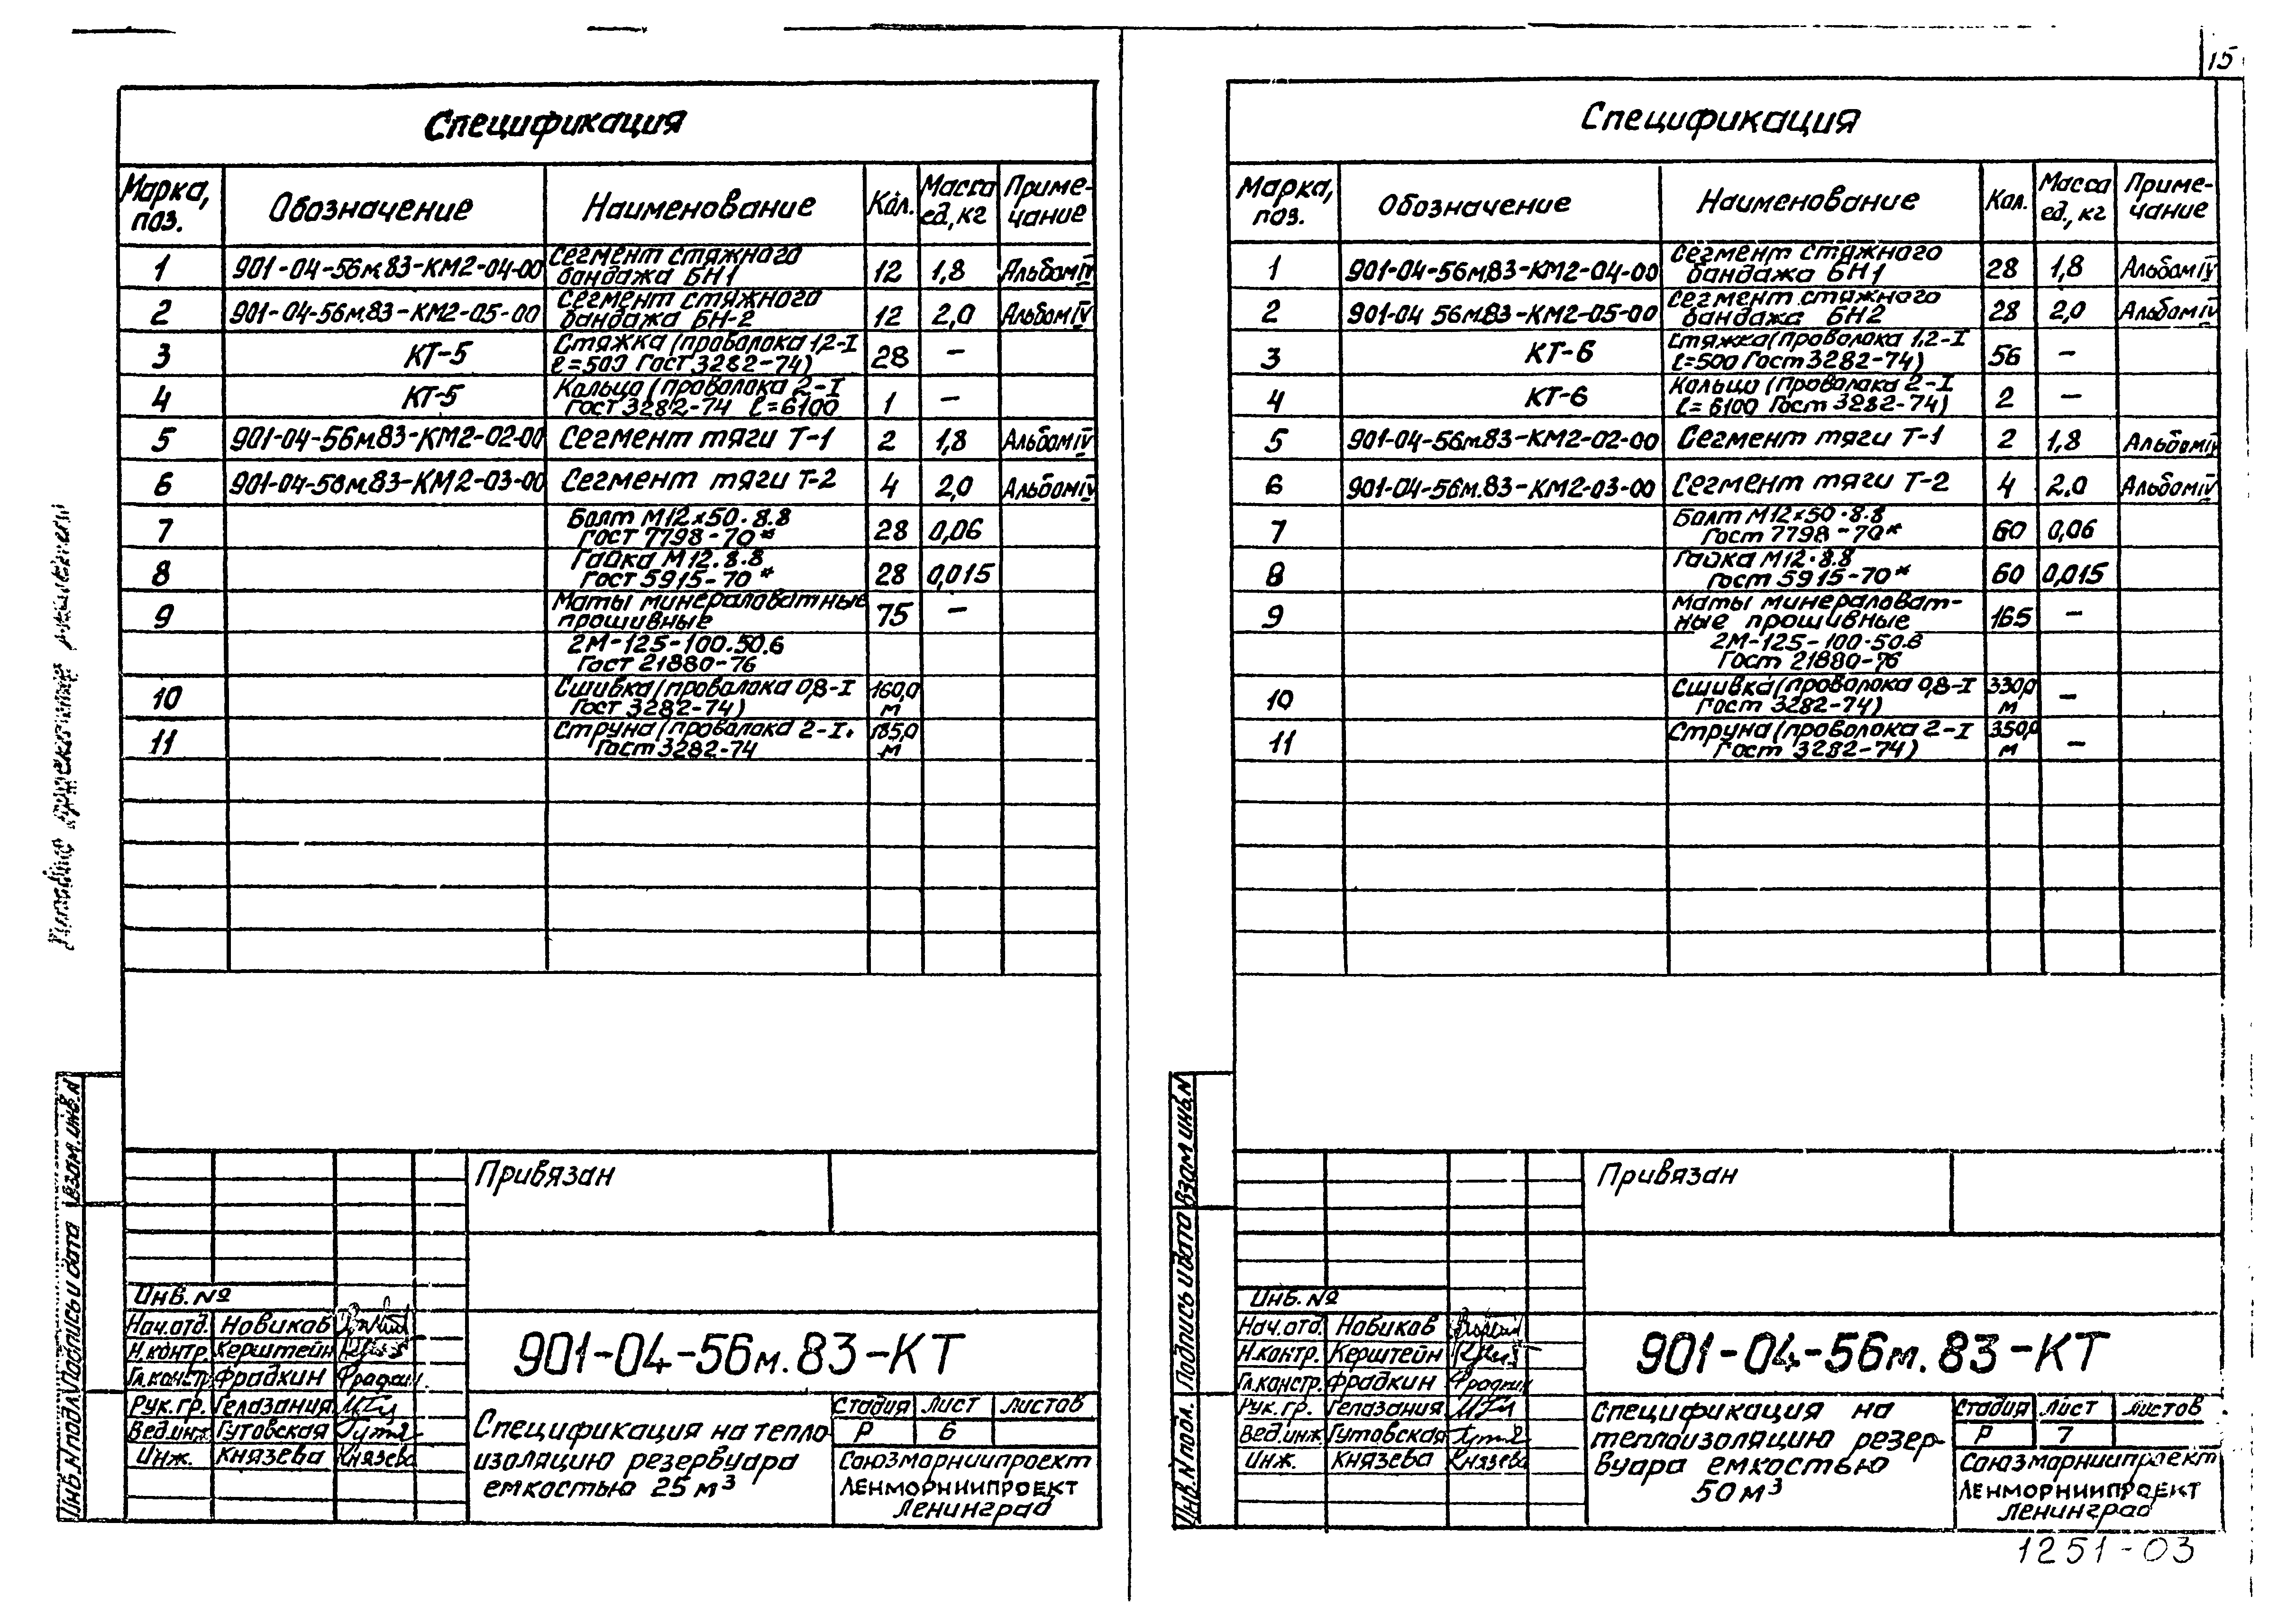 15
Спецификация
Марка, поз. Обозначение Наименование Кол. Масса ед, кг Приме- чание
1 901-04-56м.83-КМ2-04-00 Сегмент стяжного бандажа БН1 12 1,8 Альбом IV
2 901-04-56м.83-КМ2-05-00 Сегмент стяжного бандажа БН-2 12 2,0 Альбом IV
3 КТ-5 Стяжка (проволока 1,2-I ℓ=500 Гост 3282-74) 28 —
4 КТ-5 Кольцо (проволока 2-I Гост 3282-74 ℓ=6100 1 —
5 901-04-56м.83-КМ2-02-00 Сегмент тяги Т-1 2 1,8 Альбом IV
6 901-04-56м.83-КМ2-03-00 Сегмент тяги Т-2 4 2,0 Альбом IV
7 Болт М12х50.8.8 Гост 7798-70* 28 0,06
8 Гайка М12.8.8 Гост 5915-70* 28 0,015
9 Маты минераловатные прошивные 75 —
2М-125-100.50.6 Гост 21880-76
10 Сшивка (проволока 0,8-I Гост 3282-74) 160,0 м
11 Струна (проволока 2-I. Гост 3282-74 185,0 м
Привязан
Инв. №
Нач.отд. Новиков
Н.контр. Керштейн
Гл.констр. Фрадкин
Рук.гр. Гелазания
Вед.инж. Гутовская
Инж. Князева Князева
901-04-56м.83-КТ
Спецификация на тепло
изоляцию резервуара
емкостью 25 м³
Стадия Лист Листов
Р 6
Союзморниипроект
Ленморниипроект
Ленинград
Типовые проектные решения
Инв.N подл. Подпись и дата Взам.инв.N
Спецификация
Марка, поз. Обозначение Наименование Кол. Масса ед., кг Приме- чание
1 901-04-56м.83-КМ2-04-00 Сегмент стяжного бандажа БН1 28 1,8 Альбом IV
2 901-04 56м.83-КМ2-05-00 Сегмент стяжного бандажа БН2 28 2,0 Альбом IV
3 КТ-6 Стяжка (проволока 1,2-I ℓ=500 Гост 3282-74) 56 —
4 КТ-6 Кольцо (проволока 2-I ℓ=6100 Гост 3282-74) 2 —
5 901-04-56м.83-КМ2-02-00 Сегмент тяги Т-1 2 1,8 Альбом IV
6 901-04-56м.83-КМ2-03-00 Сегмент тяги Т-2 4 2.0 Альбом IV
7 Болт М12х50.8.8 Гост 7798-70* 60 0,06
8 Гайка М12.8.8 Гост 5915-70* 60 0,015
9 Маты минераловат- ные прошивные 165 —
2М-125-100.50.6 Гост 21880-76
10 Сшивка (проволока 0,8-I Гост 3282-74) 330,0 м —
11 Струна (проволока 2-I Гост 3282-74) 350,0 м —
Привязан
Инв. №
Нач.отд. Новиков
Н.контр. Керштейн
Гл.констр. Фрадкин
Рук.гр. Гелазания
Вед.инж. Гутовская
Инж. Князева Князева
901-04-56м.83-КТ
Спецификация на
теплоизоляцию резер-
вуара емкостью
50 м³
Стадия Лист Листов
Р 7
Союзморниипроект
Ленморниипроект
Ленинград
Инв.N подл. Подпись и дата Взам инв.N
1251-03